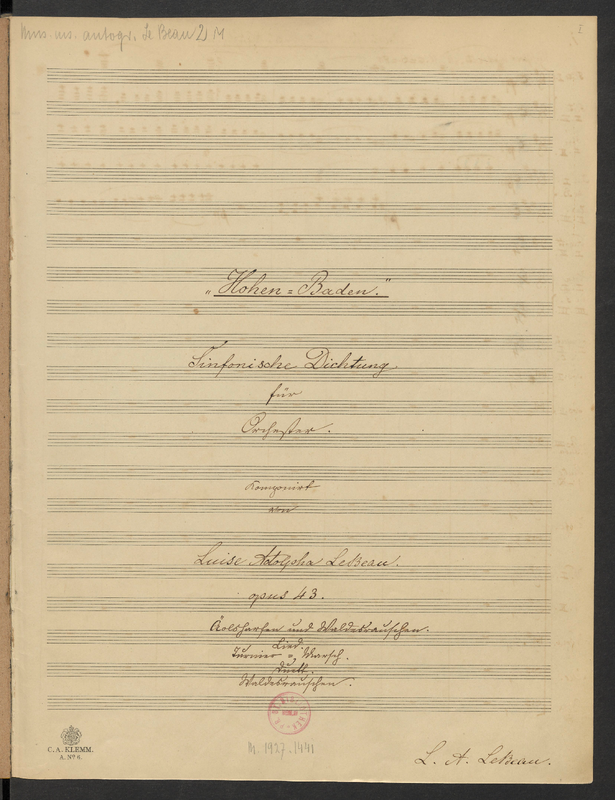 Mus. ms. autogr. Le Beau 2) M
1
„Hohen=Baden."
Sinfonische Dichtung
für
Orchester.
Komponirt
von
Luise Adolpha LeBeau.
opus 43.
Äolsharfen und Waldesrauschen.
Lied.
Turnier- u. Marsch.
Duett.
Waldesrauschen.
C.A. KLEMM.
A. No 6.
M. 1927.1441
L. A. LeBeau.